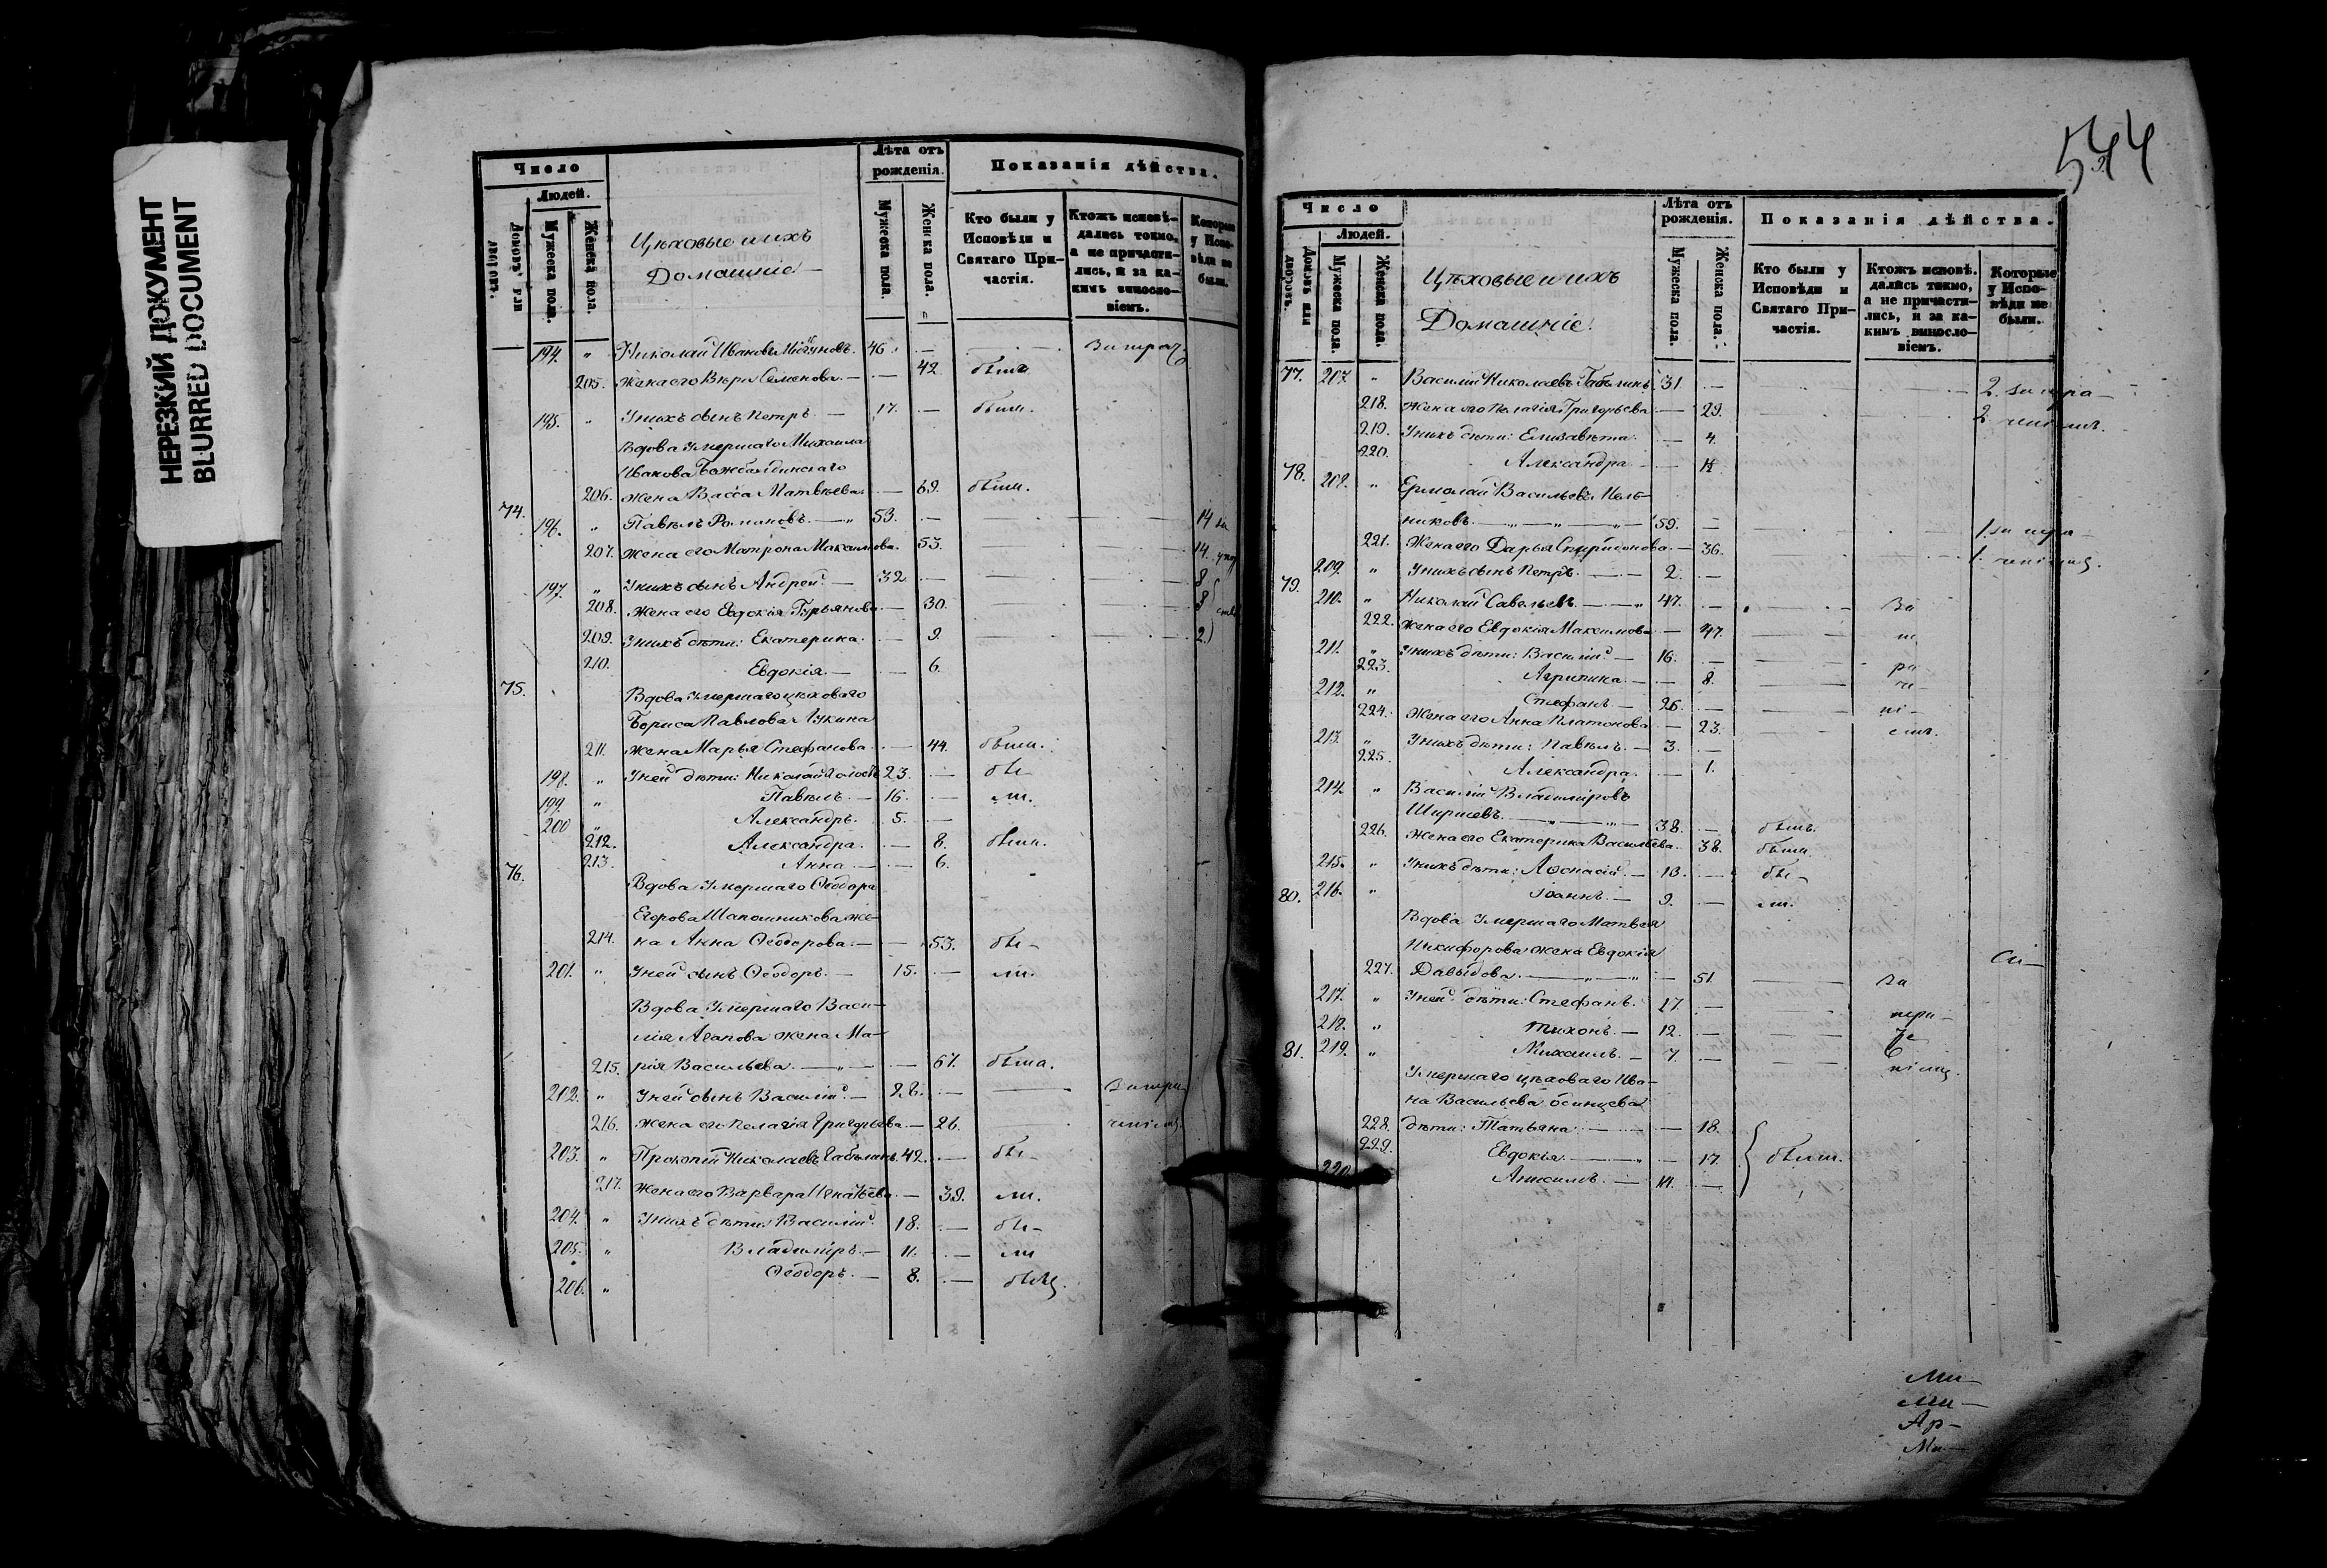 НЕРЕЗКИЙ ДОКУМЕНТ
BLURRED DOCUMENT
Число
Людей.
Домовъ или дворовъ.
Мужеска пола.
Женска пола.
Цѣховые и ихъ
Домашніе
Лѣта отъ рожденія.
Мужеска пола.
Женска пола.
Показанія дѣйства.
Кто были у Исповѣди и Святаго Причастія.
Ктожъ исповѣдались токмо, а не причастились, и за какимъ винословіемъ.
Которые у Исповѣди не были.
194. " Николай Ивановъ 46.
205. Жена его Вѣра Семенова. 42. была
195. " У нихъ сынъ Петръ. 17. былъ.
Вдова Умершаго Михаила
Иванова
206. жена Васса Матвѣева 69. была.
74. 196. " Павелъ Романовъ. 53. 14
207. Жена его Матрона Максимова. 53. 14.
197. " У нихъ сынъ Андрей. 32. 8
208. Жена его Евдокія Гурьянова. 30. 8
209. У нихъ дѣти: Екатерина. 9. 2.
210. Евдокія. 6.
75. Вдова Умершаго цѣховаго
Бориса Павлова Лукина
211. жена Марья Стефанова. 44. была.
198. " У ней дѣти: Николай 23. бы-
199. " Павелъ. 16. ли.
200 " Александръ. 5.
212. Александра. 8. была.
213. Анна. 6.
76. Вдова Умершаго Ѳеодора
Егорова Шапошникова же-
214. на Анна Ѳеодорова. 53. бы-
201. " У ней сынъ Ѳеодоръ. 15. ли.
Вдова Умершаго Васи-
лія Агапова жена Ма-
215. рія Васильева. 67. была.
202. " У ней сынъ Василій.
216. Жена его Пелагія Григорьева. 26.
203. " Прокопій Николаевъ 42. бы-
217. Жена его Варвара Игнатьева. 39. ли.
204. " У нихъ дѣти: Василій. 18. бы-
205. " Владиміръ. 11. ли
206. " Ѳеодоръ. 8.
544
Число
Людей.
Домовъ или дворовъ.
Мужеска пола.
Женска пола.
Цѣховые и ихъ
Домашніе.
Лѣта отъ рожденія.
Мужеска пола.
Женска пола.
Показанія дѣйства.
Кто были у Исповѣди и Святаго Причастія.
Ктожъ исповѣдались токмо, а не причастились, и за какимъ винословіемъ.
Которые у Исповѣди не были.
77. 207. " Василій Николаевъ 31. 2.
218. Жена его Пелагія Григорьева 29. 2
219. У нихъ дѣти: Елизавета. 4.
220. Александра
78. 208. " Ермолай Васильевъ Мель-
никовъ. 59. 1.
221. Жена его Дарья Спиридонова. 36. 1.
209. " У нихъ сынъ Петръ. 2.
79. 210. " Николай Савельевъ. 47. за
222. Жена его Евдокія Максимова 47.
211. " У нихъ дѣти: Василій. 16.
223. Агрипина. 8.
212. " Стефанъ. 26.
224. Жена его Анна Платонова 23.
213. " У нихъ дѣти: Павелъ. 3.
225. Александра. 1.
214. " Василій Владиміровъ
38. былъ.
226. Жена его Екатерина Васильева. 38. была.
215. " У нихъ дѣти: Аѳонасій. 13. бы-
80. 216. " Іоаннъ. 9. ли.
Вдова Умершаго Матвея
Никифорова жена Евдокія
227. Давыдова. 51. за
217. " У ней дѣти: Стефанъ. 17.
218. " Тихонъ. 12.
81. 219. " Михаилъ. 7.
Умершаго цѣховаго Ива-
на Васильева
228. дѣти: Татьяна 18.
229. Евдокія 17. были.
220. Анисимъ.
Ар-